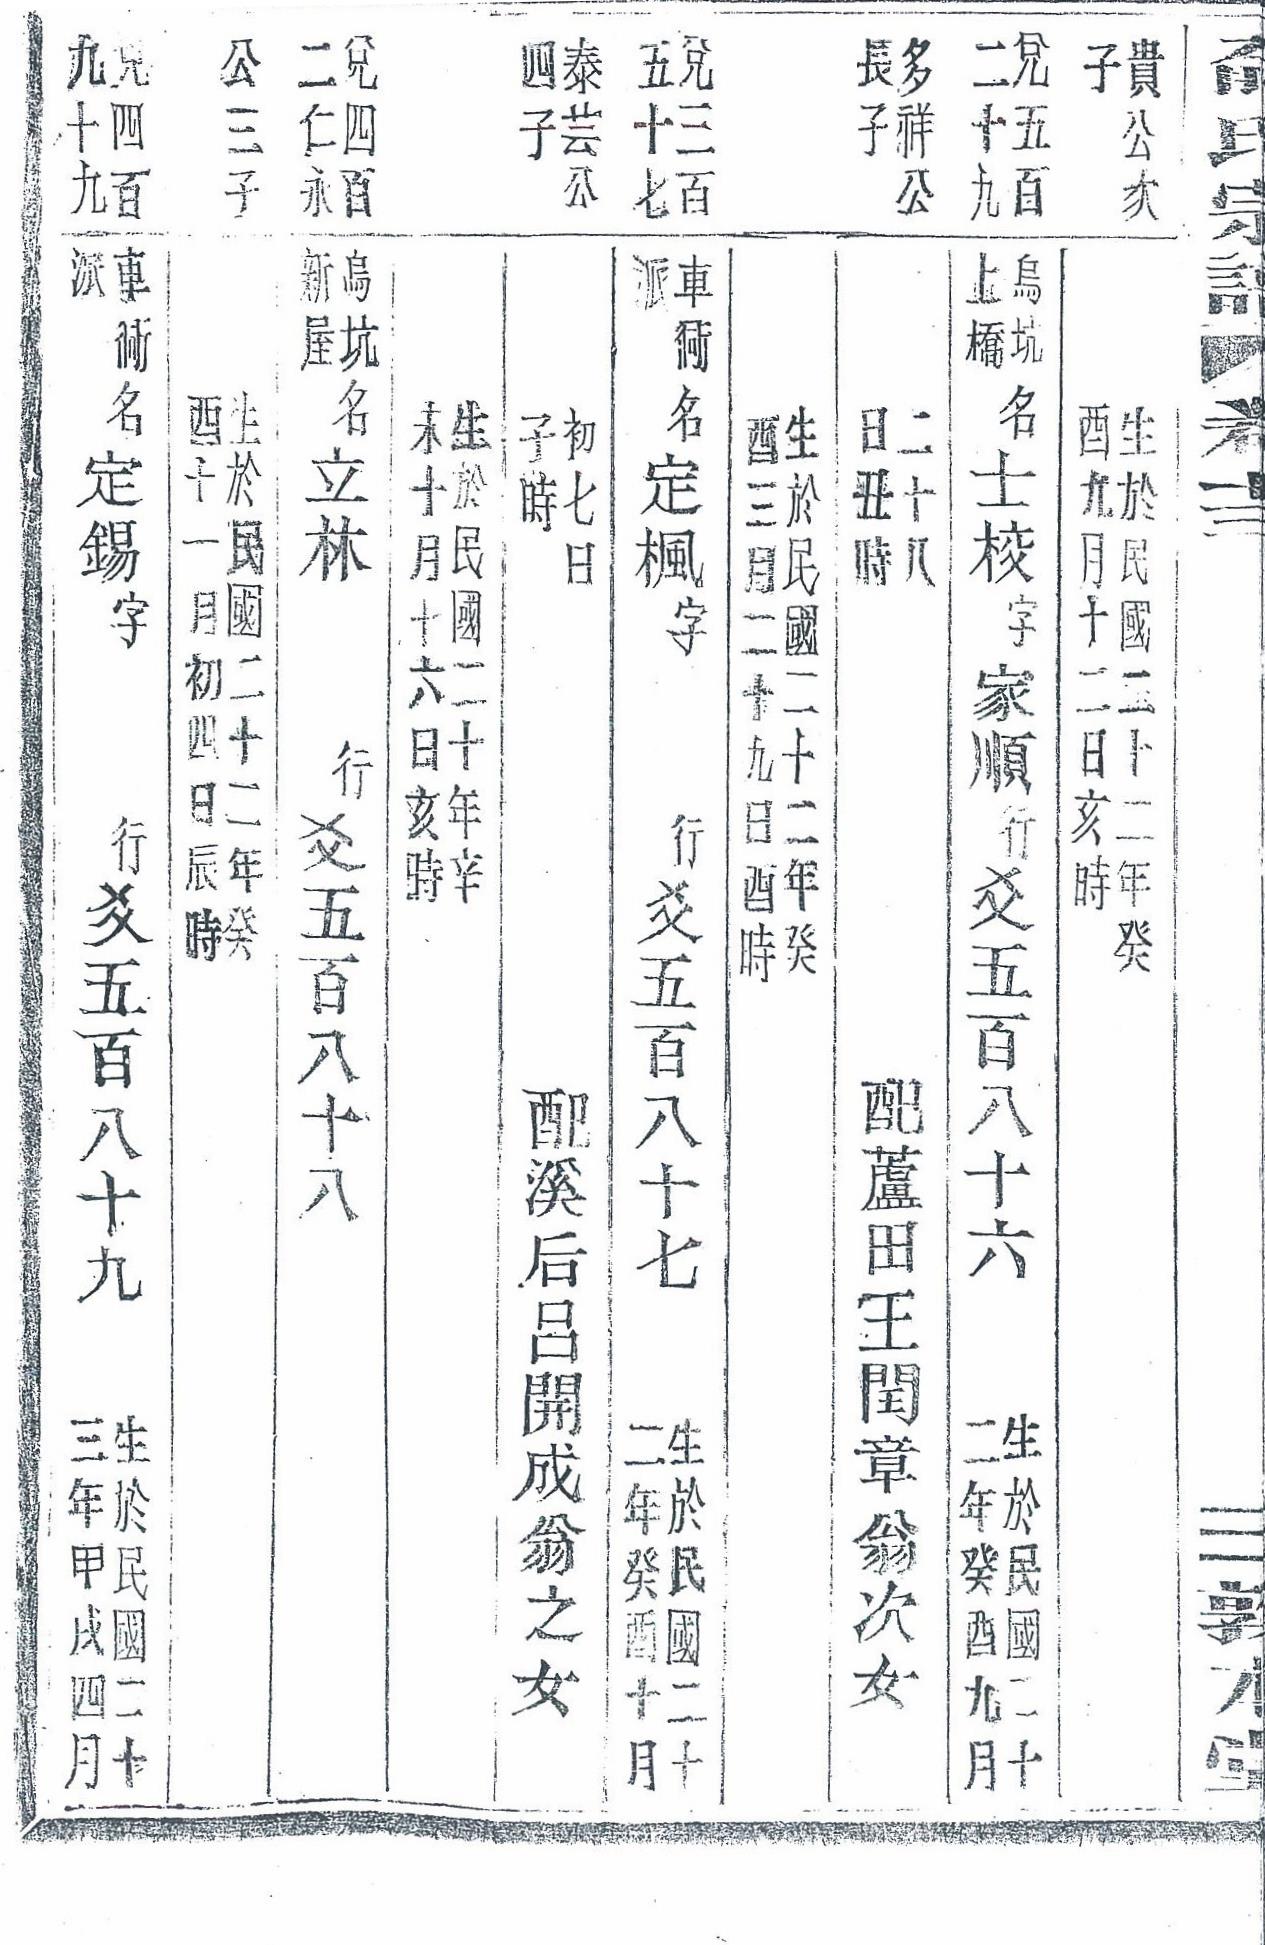 氏宗譜
卷十三
三 敦本堂
貴公次
子
生於民國二十二年癸
酉九月十二日亥時
兌五百
二十九
烏坑
上橋
名士棱字家順行爻五百八十六
生於民國二十
二年癸酉九月
多祥公
長子
二十八
日丑時
配蘆田王閏章翁次女
生於民國二十二年癸
酉三月二十九日酉時
兌三百
五十七
車衖
派
名定楓字 行爻五百八十七
生於民國二十
二年癸酉十月
泰芸公
四子
初七日
子時
配溪后呂開成翁之女
生於民國二十年辛
未十月十六日亥時
兌四百
二仁永
烏坑
新屋
名立林 行爻五百八十八
公三子
生於民國二十二年癸
酉十一月初四日辰時
兌四百
九十九
車衖
派
名定錫字 行爻五百八十九
生於民國二十
三年甲戌四月